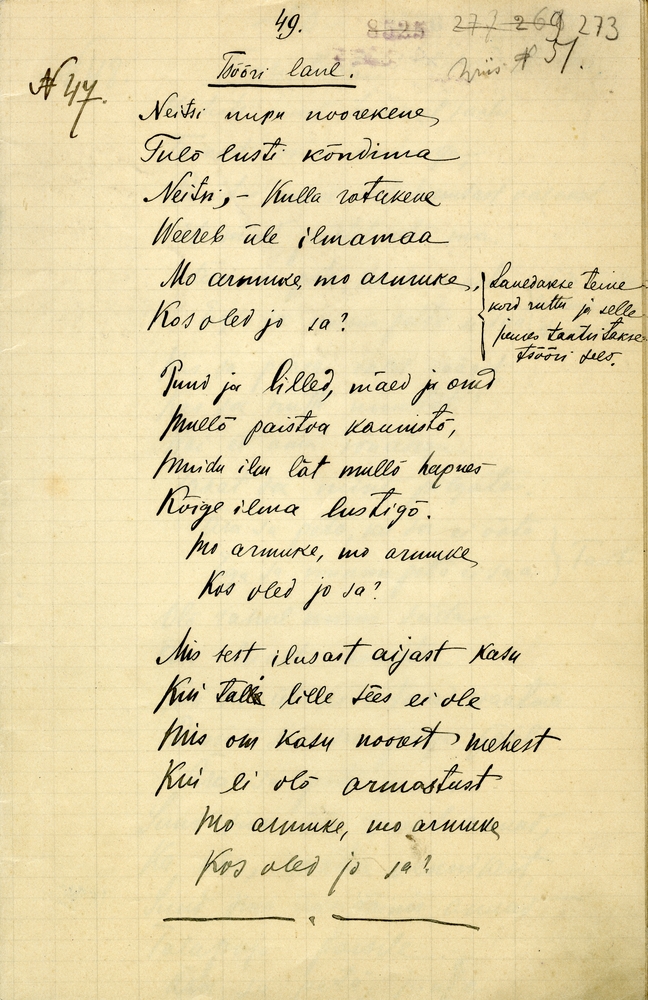 49.
8525 277 269 273
Wiis. № 51.
Tsõõri laul.
№ 47.
Neitsi nupu noorekene,
Tulõ lusti kõndima
Neitsi, - Kulla rotukene
Weereb üle ilmamaa
Mo armuke, mo armuke,
Kos oled jo sa?
Lauldakse teine
kord ruttu ja selle
juures tantsitakse
tsõõri sees.
Puud ja lilled, mäed ja orud
Mullõ paistva kaunistõ,
Muidu ilm lät mullõ hapnes
Kõige ilma lustigõ.
Mo armuke, mo armuke,
Kos oled jo sa?
Mis sest ilusast aijast kasu
Kui talle lille sees ei ole
Mis om kasu noorest mehest
Kui ei olõ armastust
Mo armuke, mo armuke
Kos oled jo sa?